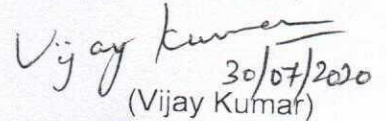 Vijay Kumar
30/07/2020
(Vijay Kumar)